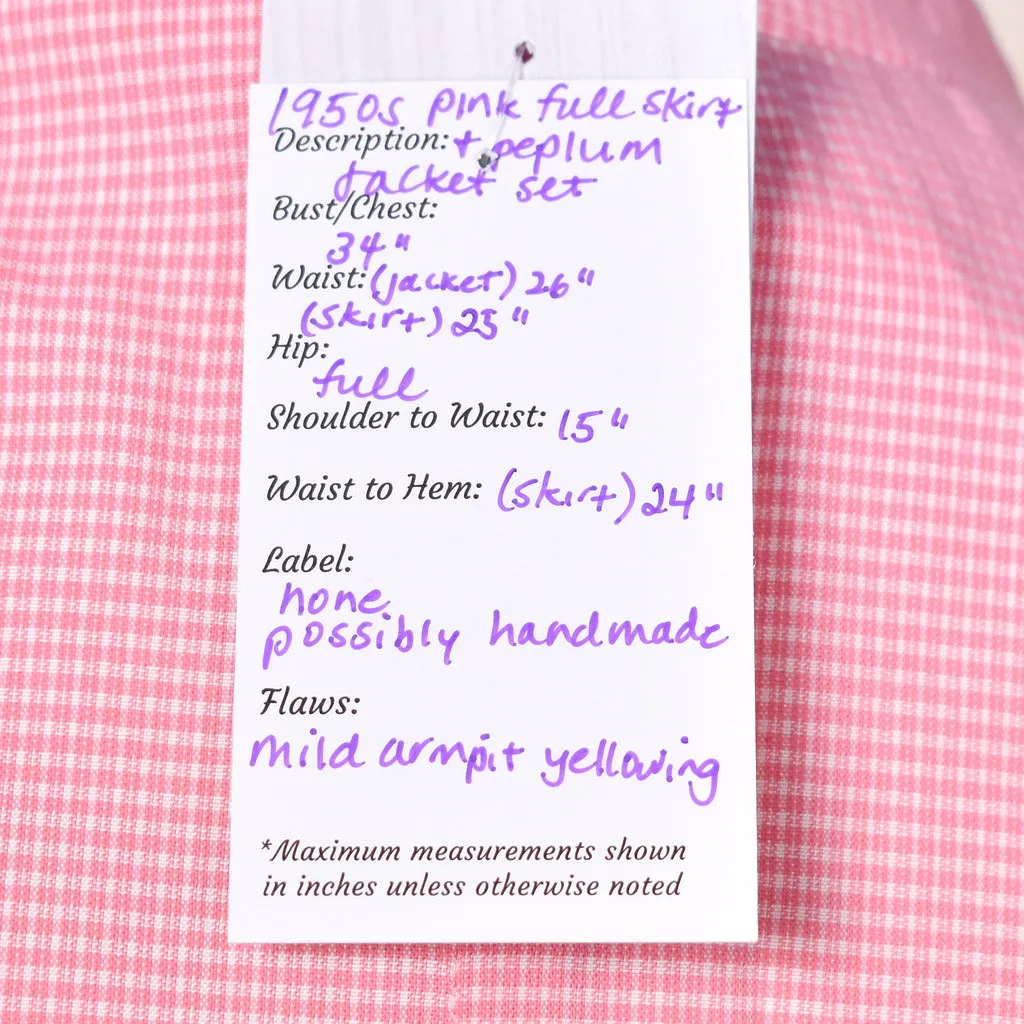 1950s pink full skirt
Description: + peplum
Jacket set
Bust/Chest:
34"
Waist: (jacket) 26"
(skirt) 25"
Hip:
full
Shoulder to Waist: 15"
Waist to Hem: (skirt) 24"
Label:
none
possibly handmade
Flaws:
mild armpit yellowing
*Maximum measurements shown
in inches unless otherwise noted